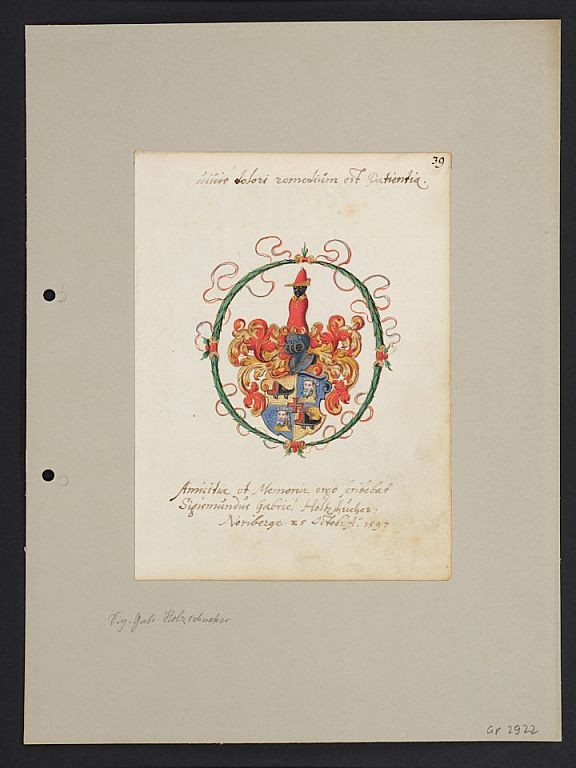 39
dolori remedium est Patientia.
Amicitiæ et Memoriæ ergo scribebat
Sigismundus Gabriel Holtzschucher.
Noribergæ 25 Octob. A° 1597
Sig. Gabr. Holzschuher
Gr 2922